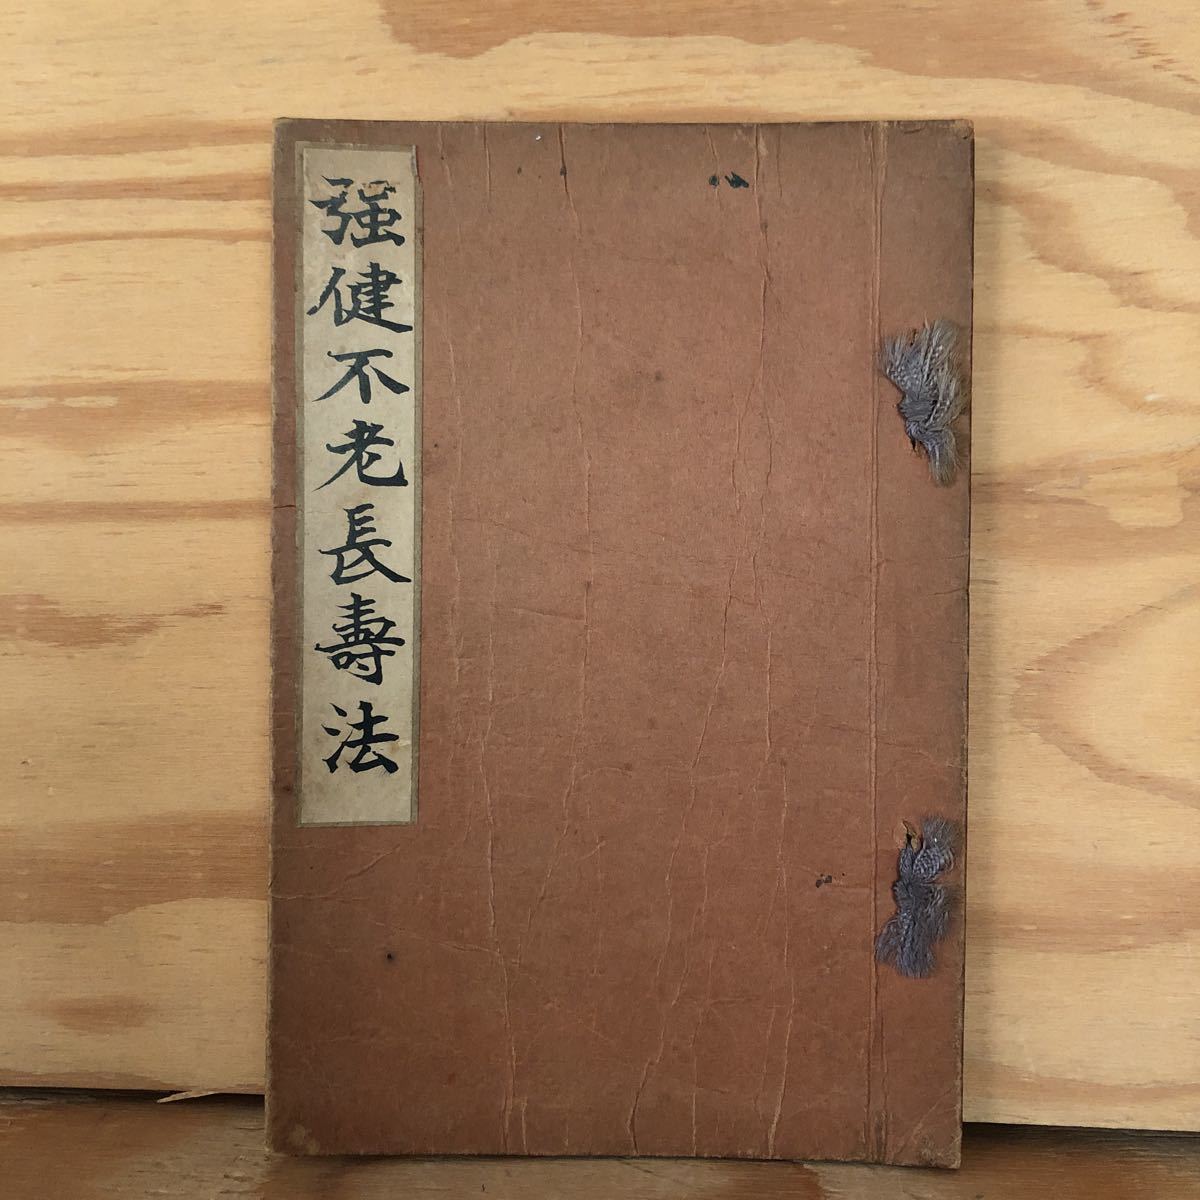 强健不老長壽法